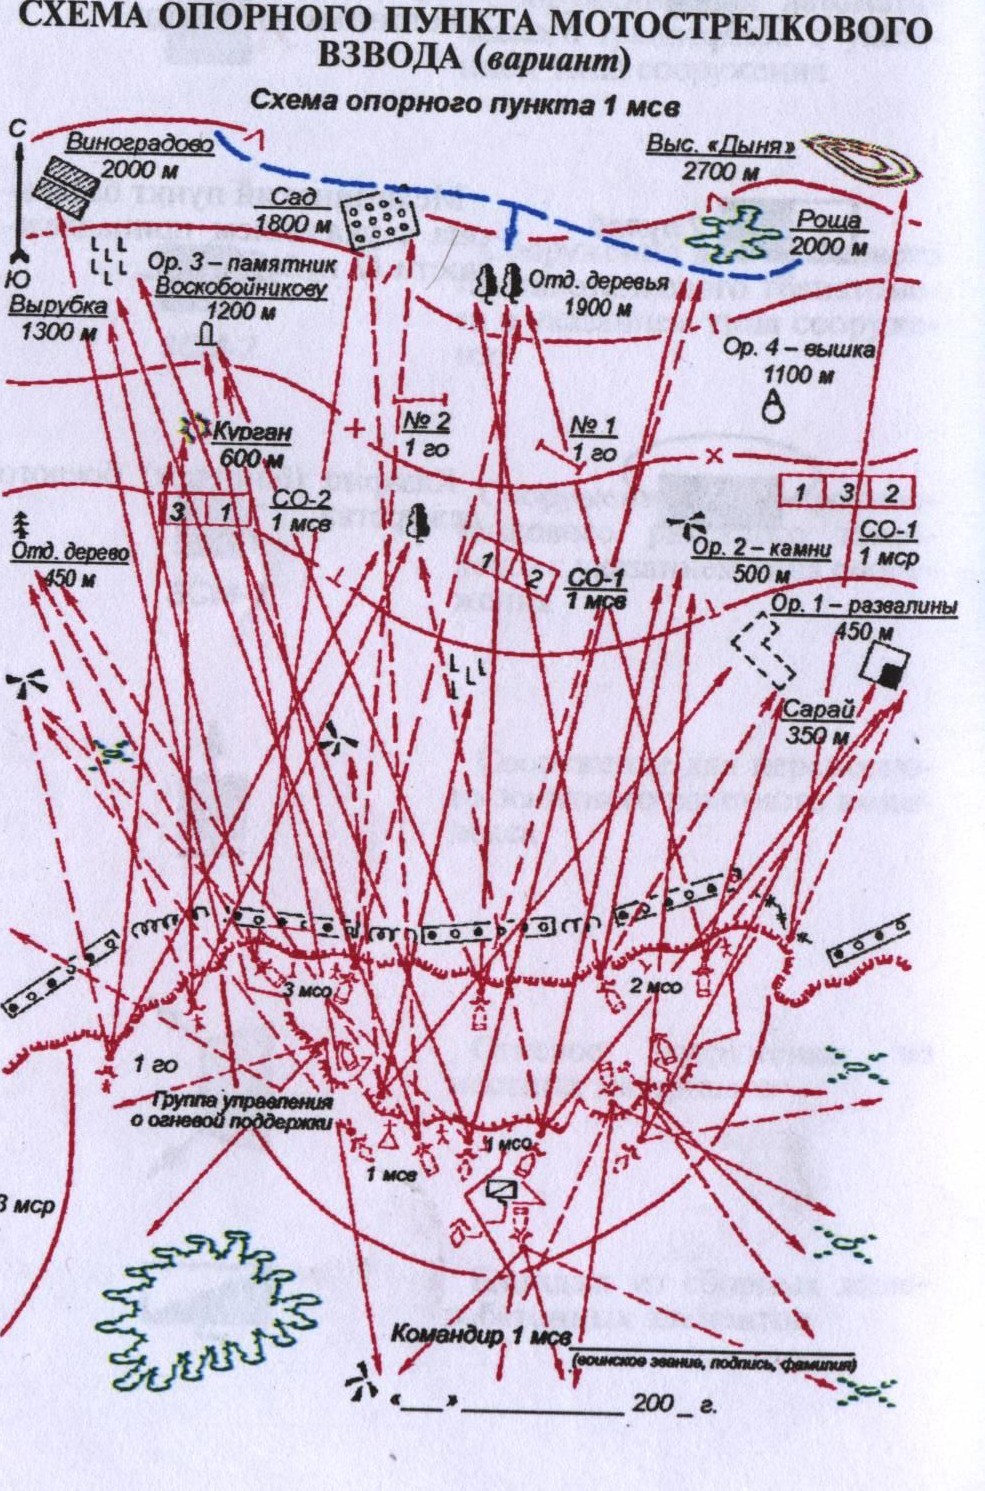 СХЕМА ОПОРНОГО ПУНКТА МОТОСТРЕЛКОВОГО
ВЗВОДА (вариант)
Схема опорного пункта 1 мсв
С
Ю
Виноградово
2000 м
Сад
1800 м
Выс. «Дыня»
2700 м
Роща
2000 м
Вырубка
1300 м
Ор. 3 – памятник
Воскобойникову
1200 м
Отд. деревья
1900 м
Ор. 4 – вышка
1100 м
Курган
600 м
№ 2
1 го
№ 1
1 го
3 1
СО-2
1 мсв
1 3 2
СО-1
1 мср
Отд. дерево
450 м
1 2
СО-1
1 мсв
Ор. 2 – камни
500 м
Ор. 1 – развалины
450 м
Сарай
350 м
3 мсо
2 мсо
1 го
Группа управления
о огневой поддержки
1 мсо
1 мсв
3 мср
Командир 1 мсв
(воинское звание, подпись, фамилия)
«___» ______________ 200 _ г.